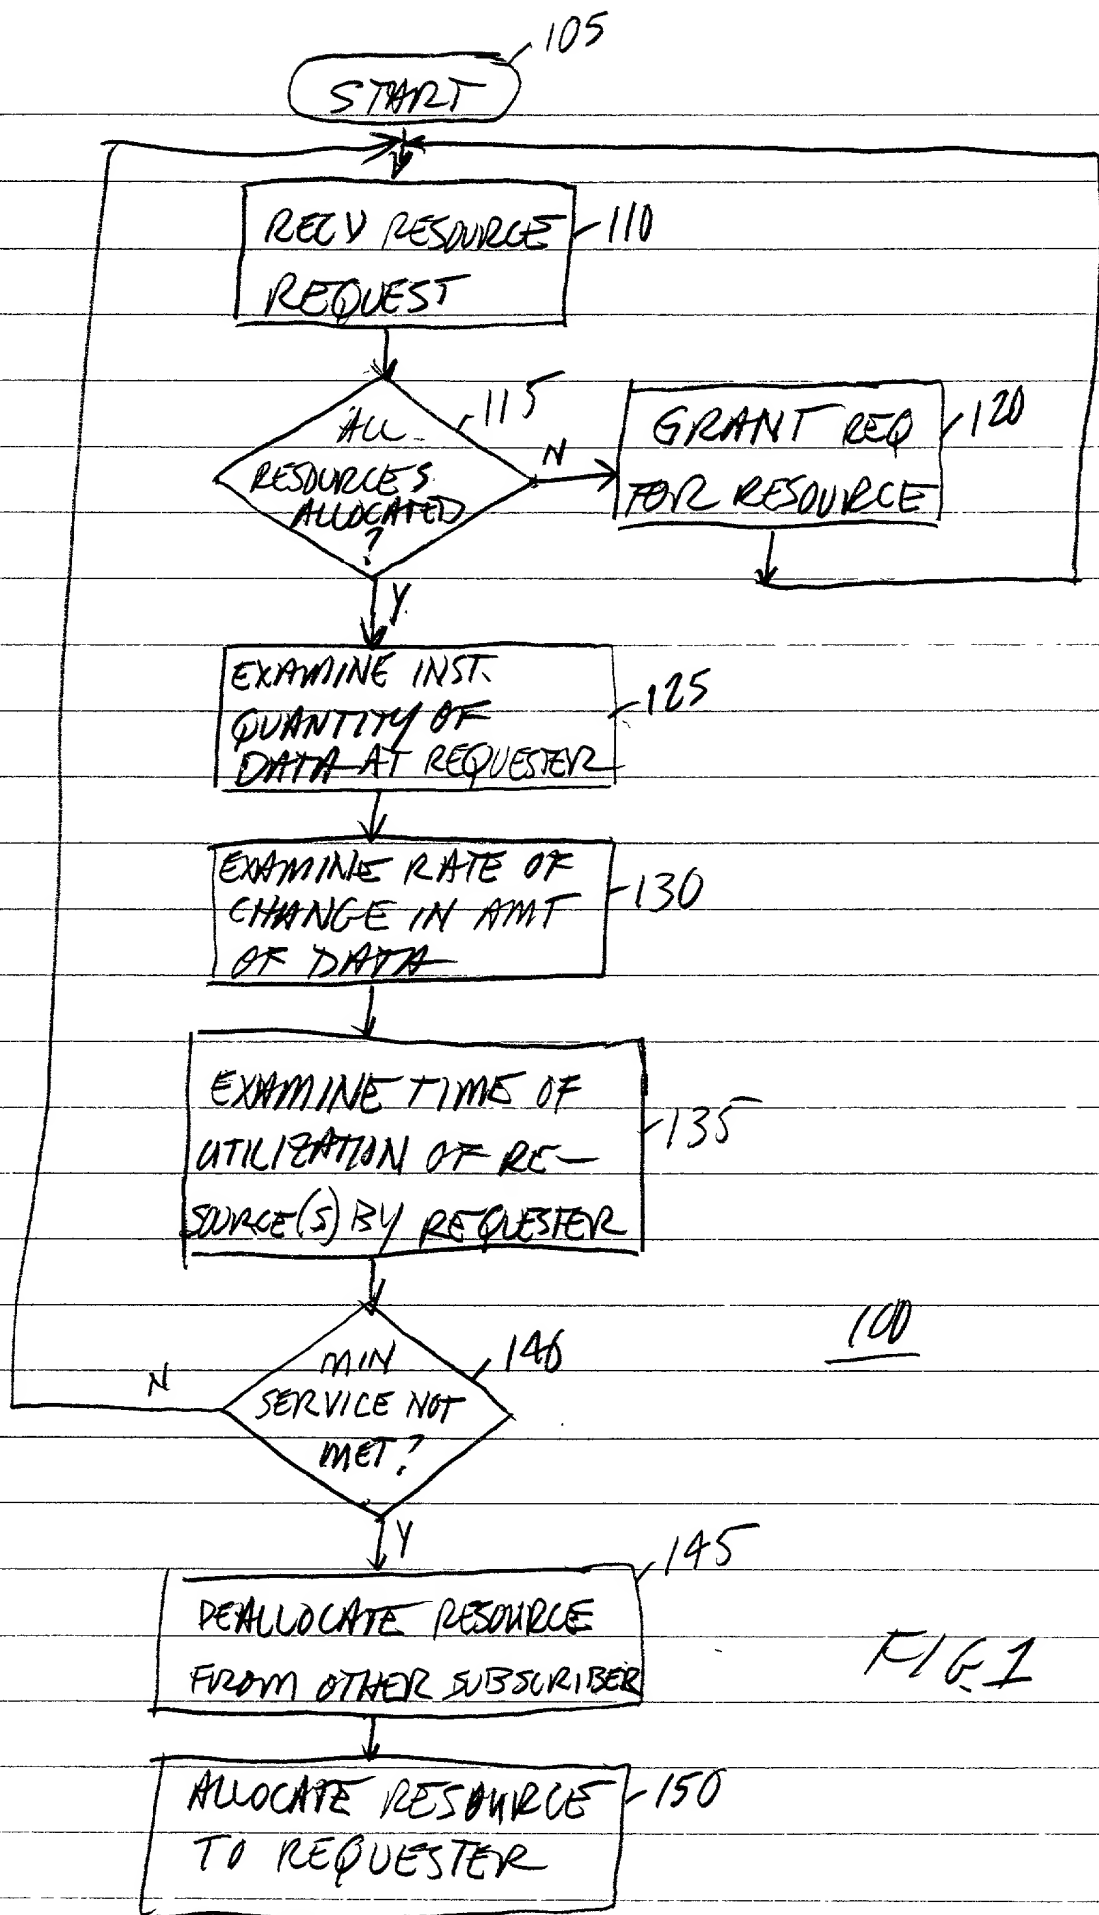 105
START
RECV RESOURCE
REQUEST
110
ALL
RESOURCES
ALLOCATED
?
115
N
GRANT REQ
FOR RESOURCE
120
Y
EXAMINE INST.
QUANTITY OF
DATA AT REQUESTER
125
EXAMINE RATE OF
CHANGE IN AMT
OF DATA
130
EXAMINE TIME OF
UTILIZATION OF RE-
SOURCE(S) BY REQUESTER
135
MIN
SERVICE NOT
MET?
140
N
100
Y
DEALLOCATE RESOURCE
FROM OTHER SUBSCRIBER
145
FIG. 1
ALLOCATE RESOURCE
TO REQUESTER
150